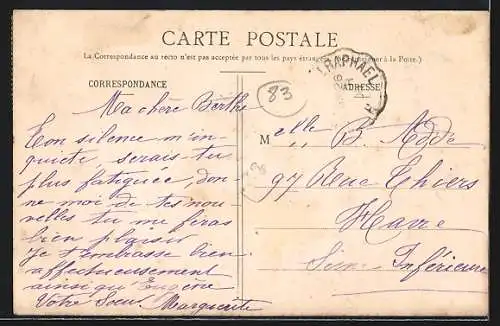 CARTE POSTALE
La Correspondance au recto n'est pas acceptée par tous les pays étrangers à la Poste.)
CORRESPONDANCE
ADRESSE
RAPHAEL
83
Ma chère Berthe
Ton silence m'in
quiète, serais-tu
plus fatiguée, don-
ne moi de tes nou-
velles tu me feras
bien plaisir
Je t'embrasse bien
affectueusement
ainsi qu'Eugène
Votre Sœur Marguerite
Melle B. Adde
97 Rue Thiers
Havre
Seine Inférieure